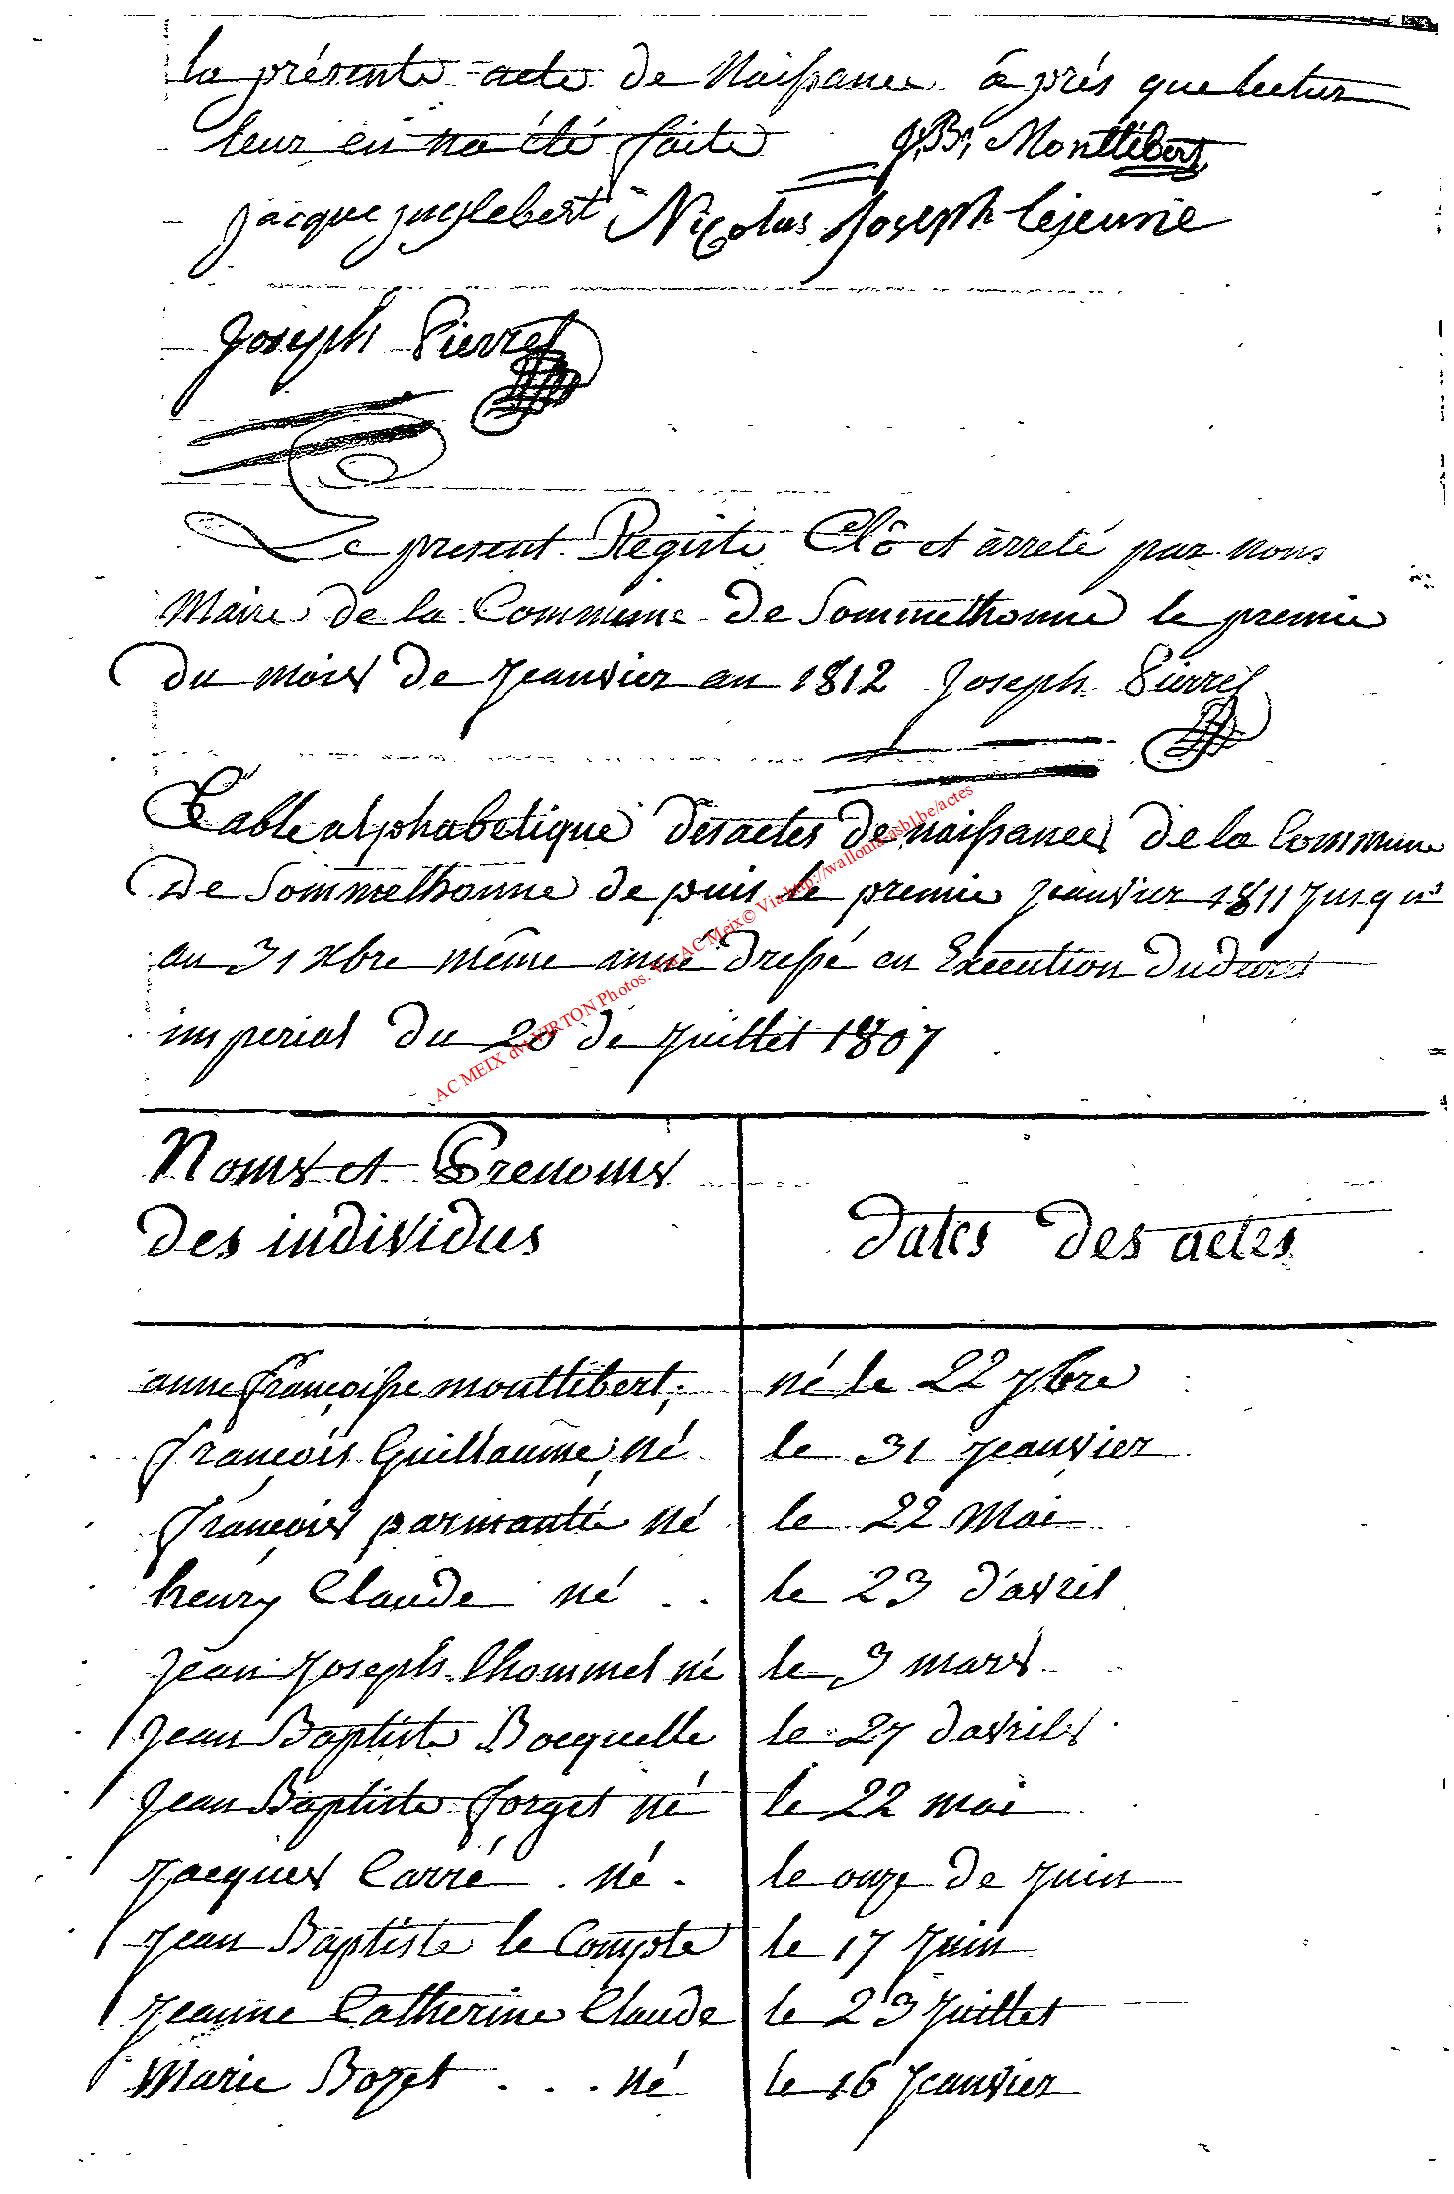 la présente acte de Naissance àprés que lectur
leur en na été faite J,B, Montlibert
jacque jnglebert Nicolas Joseph lejeune
Joseph Pierret
Le present Registe Clô et àrreté par nous
Maire de la Commune de Sommethonne le premie
du mois de Jeanvier an 1812 Joseph Pierret
Table alphabetique des actes de naissances de la Commune
de Sommethonne de puis le premie Jeanvier 1811 Jusqu'
au 31 Xbre même anné dressé en Execution du decret
imperial du 20 de Juillet 1807
AC MEIX dvt VIRTON Photos: AC Meix© Via http://wallonica.asbl.be/actes
Noms et Prenoms
des individus
dates des actes
anne françoisse montlibert, né le 22 7bre
françois Guillaume né le 31 Jeanvier
françois parmantié né le 22 Mai
henry Claude né . . le 23 d'avril
Jean Joseph lhommel né le 3 mars
Jean Baptiste Bocquelle le 27 davrils
Jean Baptiste forget né le 22 mai
Jacques Carré . né . le onze de Juin
Jean Baptiste le Compte le 17 Juin
Jeanne Catherine Claude le 23 Juillet
Marie Bozet . . . né le 16 Jeanvier